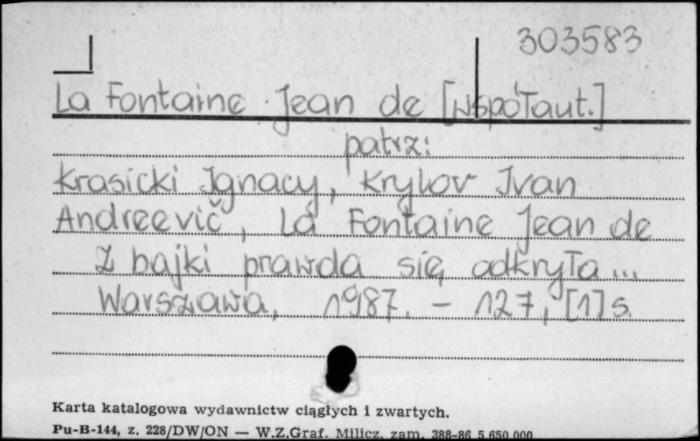 303583
La Fontaine Jean de [współaut.]
patrz:
Krasicki Ignacy, Krylov Ivan
Andreevič, La Fontaine Jean de
Z bajki prawda się odkryła...
Warszawa, 1987. - 127, [1] s.
Karta katalogowa wydawnictw ciągłych i zwartych.
Pu-B-144, z. 228/DW/ON — W.Z.Graf. Milicz, zam. 388-86 5.650.000